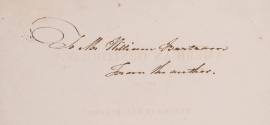 To Mr William Bartram
From the author.